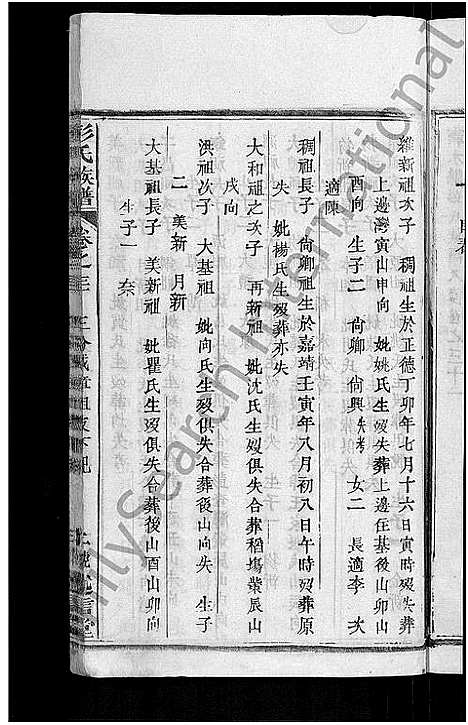 維新祖次子　稠祖生於正德丁卯年七月十六日寅時歿失葬
上邊灣寅山申向　妣姚氏生歿失葬上邊庄基後山卯山
酉向　生子二　尙卿　尙興失考　女二　長適李　次
適陳
稠祖長子　尙卿祖生於嘉靖壬寅年八月初八日午時歿葬原
失　妣楊氏生歿葬亦失
大和祖之次子　再新祖　妣沈氏生歿俱失合葬稻塲業辰山
戌向
洪祖次子　大基祖　妣向氏生歿俱失合葬後山向失　生子
二　美新　月新
大基祖長子　美新祖　妣瞿氏生歿俱失合葬後山酉山卯向
生子一　奈
彭氏族譜　卷之三
FamilySearch International